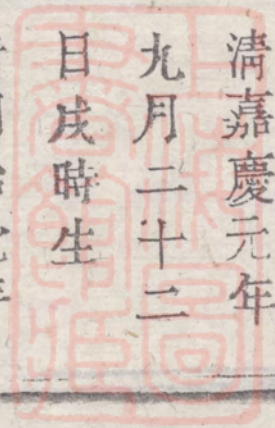 清嘉慶元年
九月二十二
日戌時生